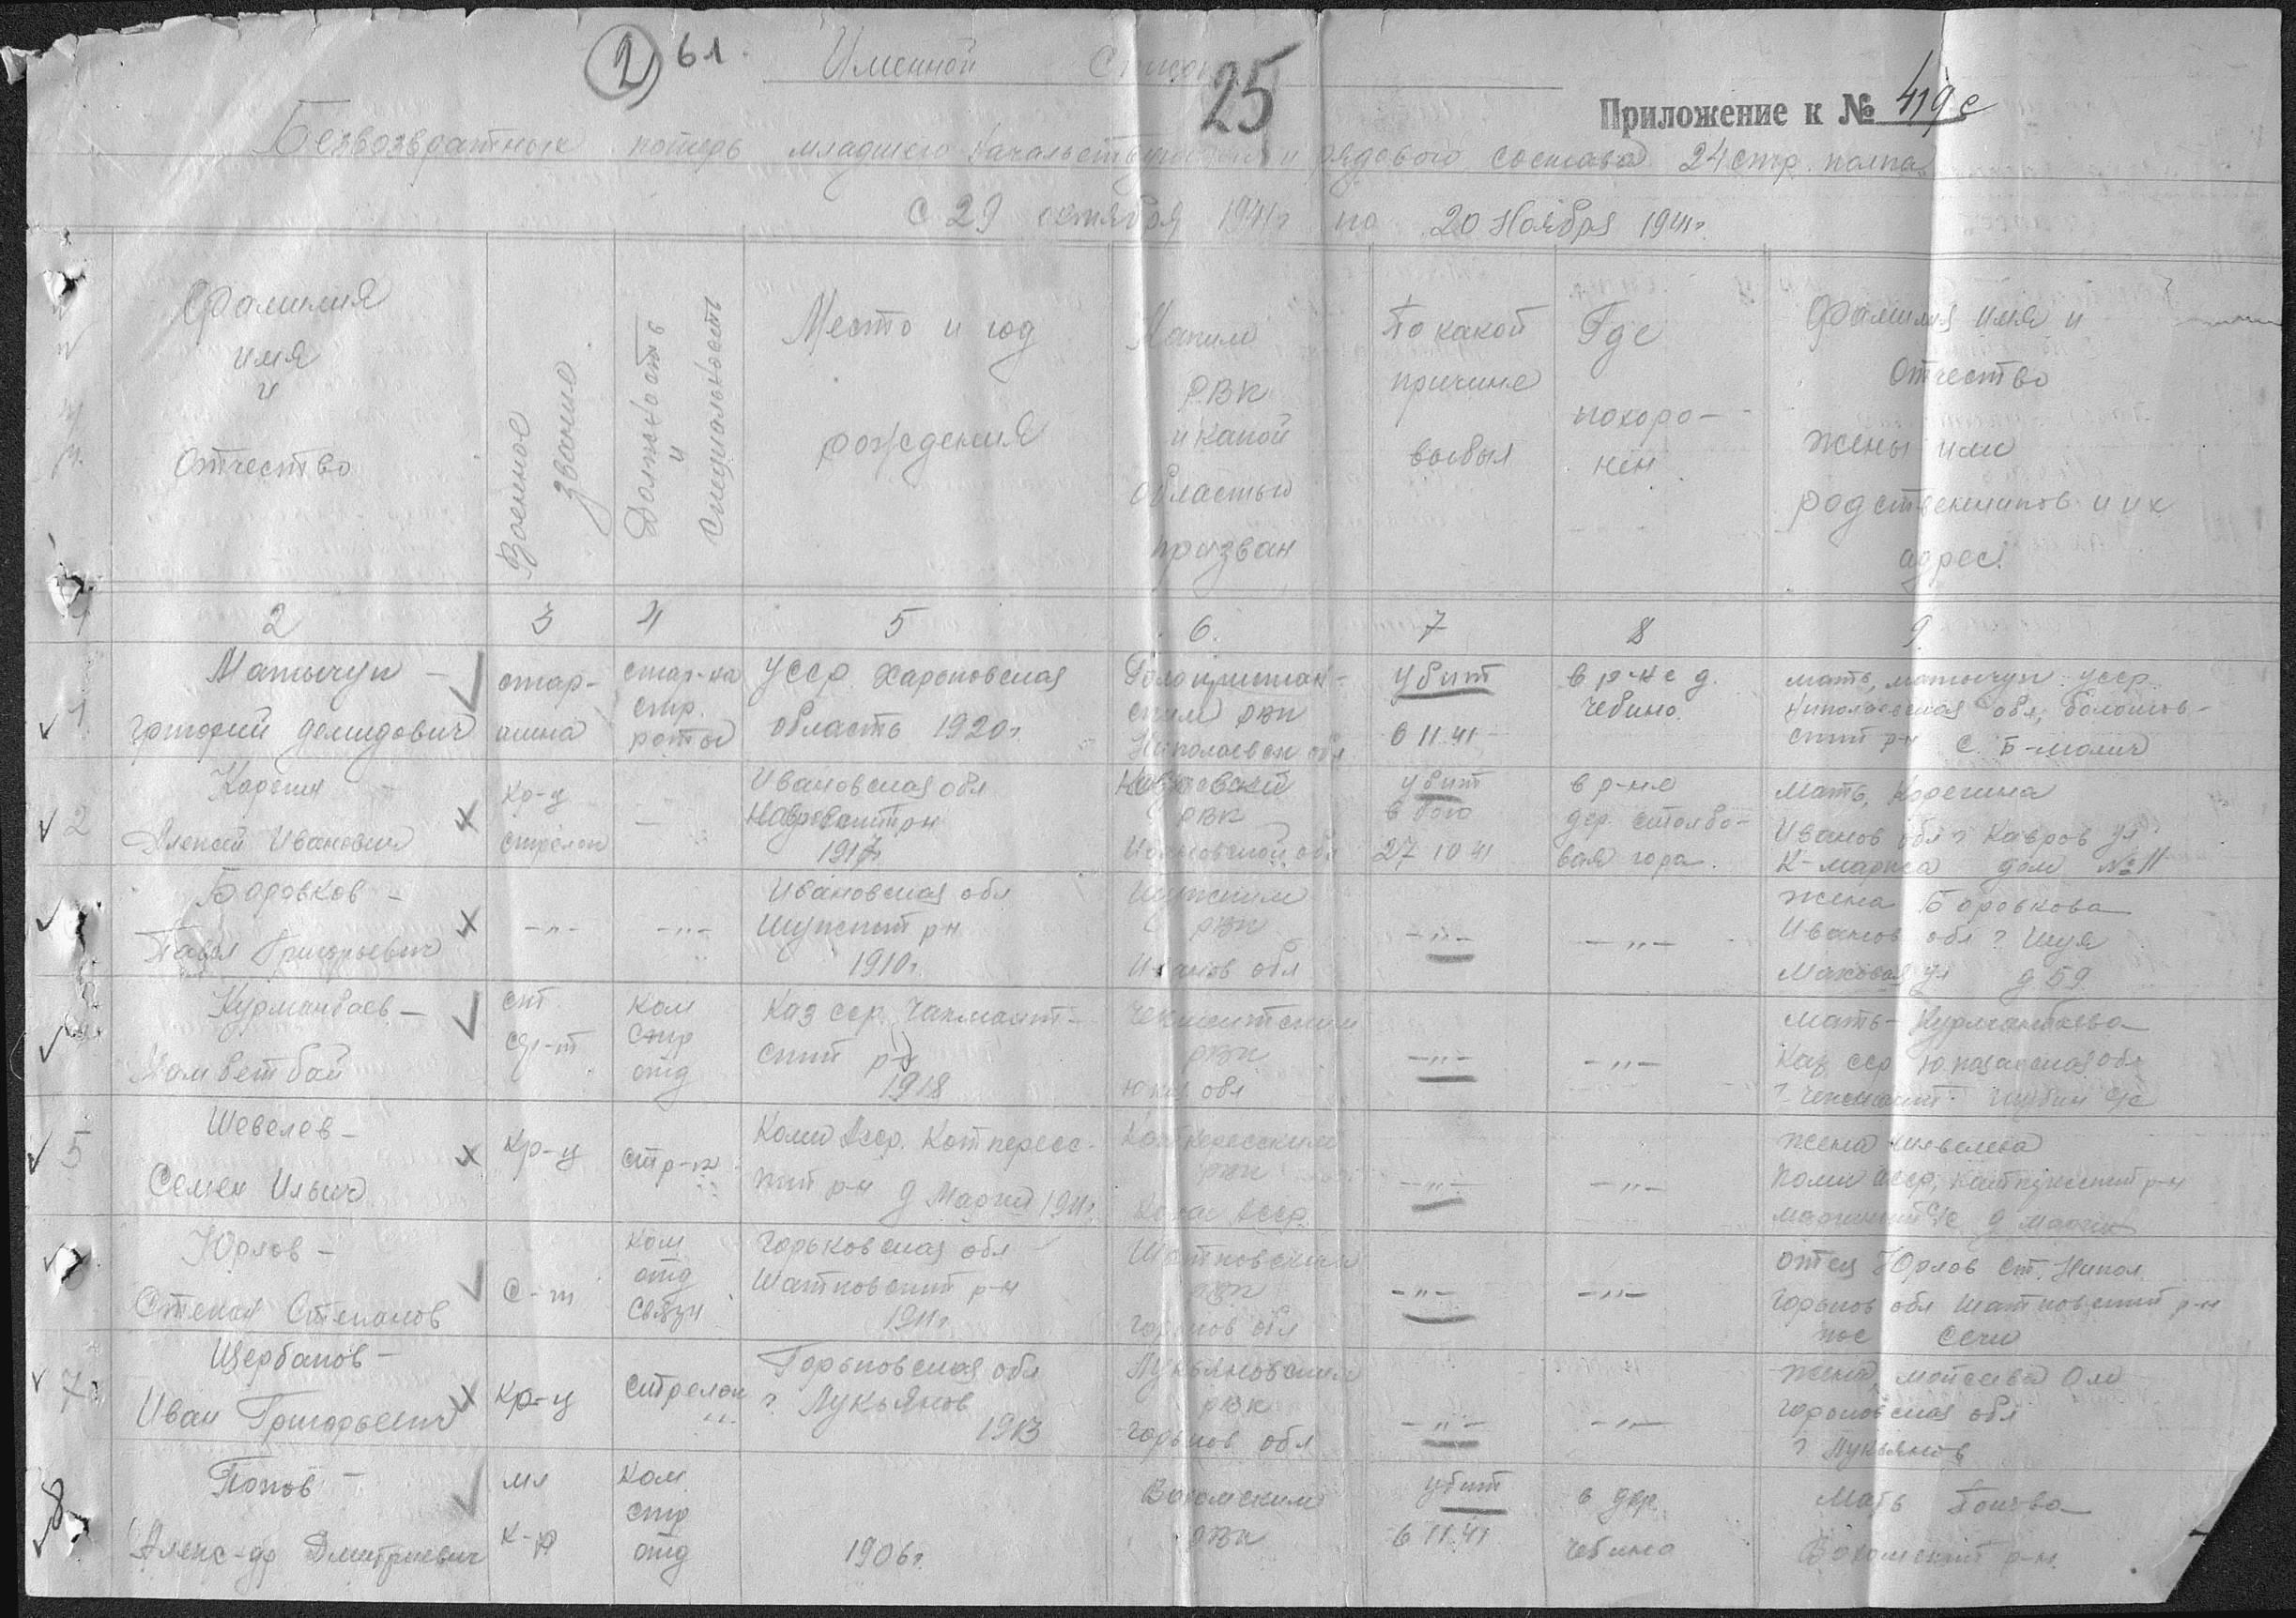 2 61.
Именной Список
25
Приложение к № 419с
Безвозвратных потерь младшего начальствующего и рядового состава 24 стр. полка
с 29 октября 1941г по 20 Ноября 1941г.
Фамилия
имя
и
Отчество
Военное
звание
Должность
и
специальность
Место и год
рождения
Каким
РВК
и какой
областью
призван
По какой
причине
выбыл
Где
похоро-
нен
Фамилия имя и
Отчество
жены или
родственников и их
адрес.
2 3 4 5 6. 7 8 9.
1
Матычук -
Григорий Демидович
стар-
шина
стар-на
стр.
роты
УССР Харьковская
область 1920г.
Голопристан-
ским РВК
Николаевск обл
убит
6 11 41
в р-не д.
Чебино.
мать, Матычук УССР
Николаевская обл,
р-н с.
2
Карегин
Алексей Иванович
кр-ц
стрелок
—
Ивановская обл
Ковровский р-н
1917г
Ковровский
РВК
Ивановской обл
убит
в бою
27 10 41
в р-не
дер. Столбо-
вая гора.
Мать, Карегина
Иванов обл г Ковров ул
К-Маркса дом № 11
Боровков -
Павел Григорьевич
-"-
-"-
Ивановская обл
Шуйский р-н
1910г.
Шуйским
РВК
Иванов обл
-"-
-"-
жена Боровкова
Иванов обл г Шуя
ул д 59
Курманбаев -
Мамветбай
ст
с-т
Ком
стр
отд
Каз ССР Чимкент-
ский р-н
1918
Чимкентским
РВК
юкз обл
-"-
-"-
мать - Курманбаева
Каз ССР Ю казахская обл
г Чимкент с/с
5
Шевелев -
Семен Ильич
Кр-ц
стр-к
Коми АССР. Кочпересс-
кий р-н д 1911г.
РВК
Коми АССР
-"-
-"-
жена Шевелева
Коми АССР, р-н
с/с д
Юрлов -
Степан Степанов
с-т
Ком
отд
связи
Горьковская обл
Шатковский р-н
1911г.
Шатковским
РВК
Горьков обл
-"-
-"-
отец Юрлов Ст. Никол
Горьков обл Шатковский р-н
пос Сечи
7
Щербаков -
Иван Григорьевич
Кр-ц
стрелок
Горьковская обл
г. Лукьянов
1913
Лукьяновским
РВК
Горьков обл
-"-
-"-
жена,
Горьковская обл
г Лукьянов
8
Попов -
Алекс-др Дмитриевич
мл
к-р
Ком
стр
отд
1906г.
Вохомским
РВК
убит
6 11.41
в дер
Чебина
Мать Попова
Вохомский р-н